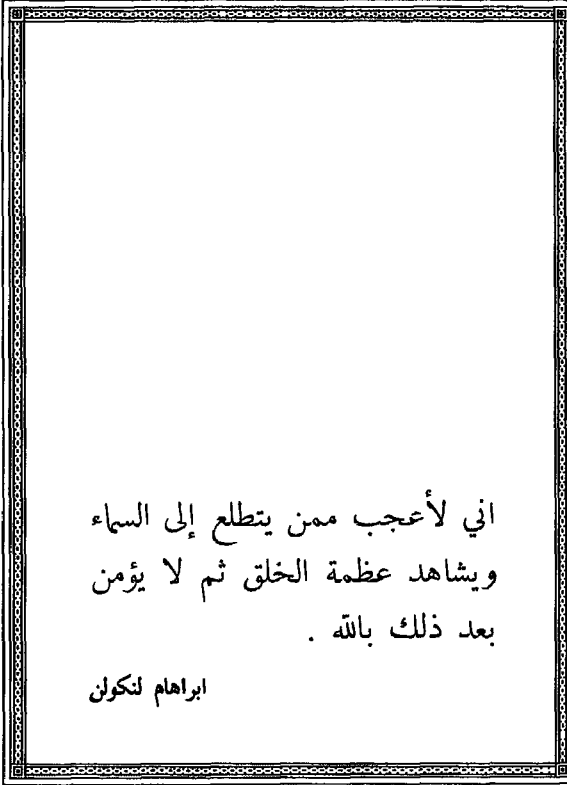 اني لأعجب ممن يتطلع إلى السماء
ويشاهد عظمة الخلق ثم لا يؤمن
بعد ذلك بالله .
ابراهام لنكولن